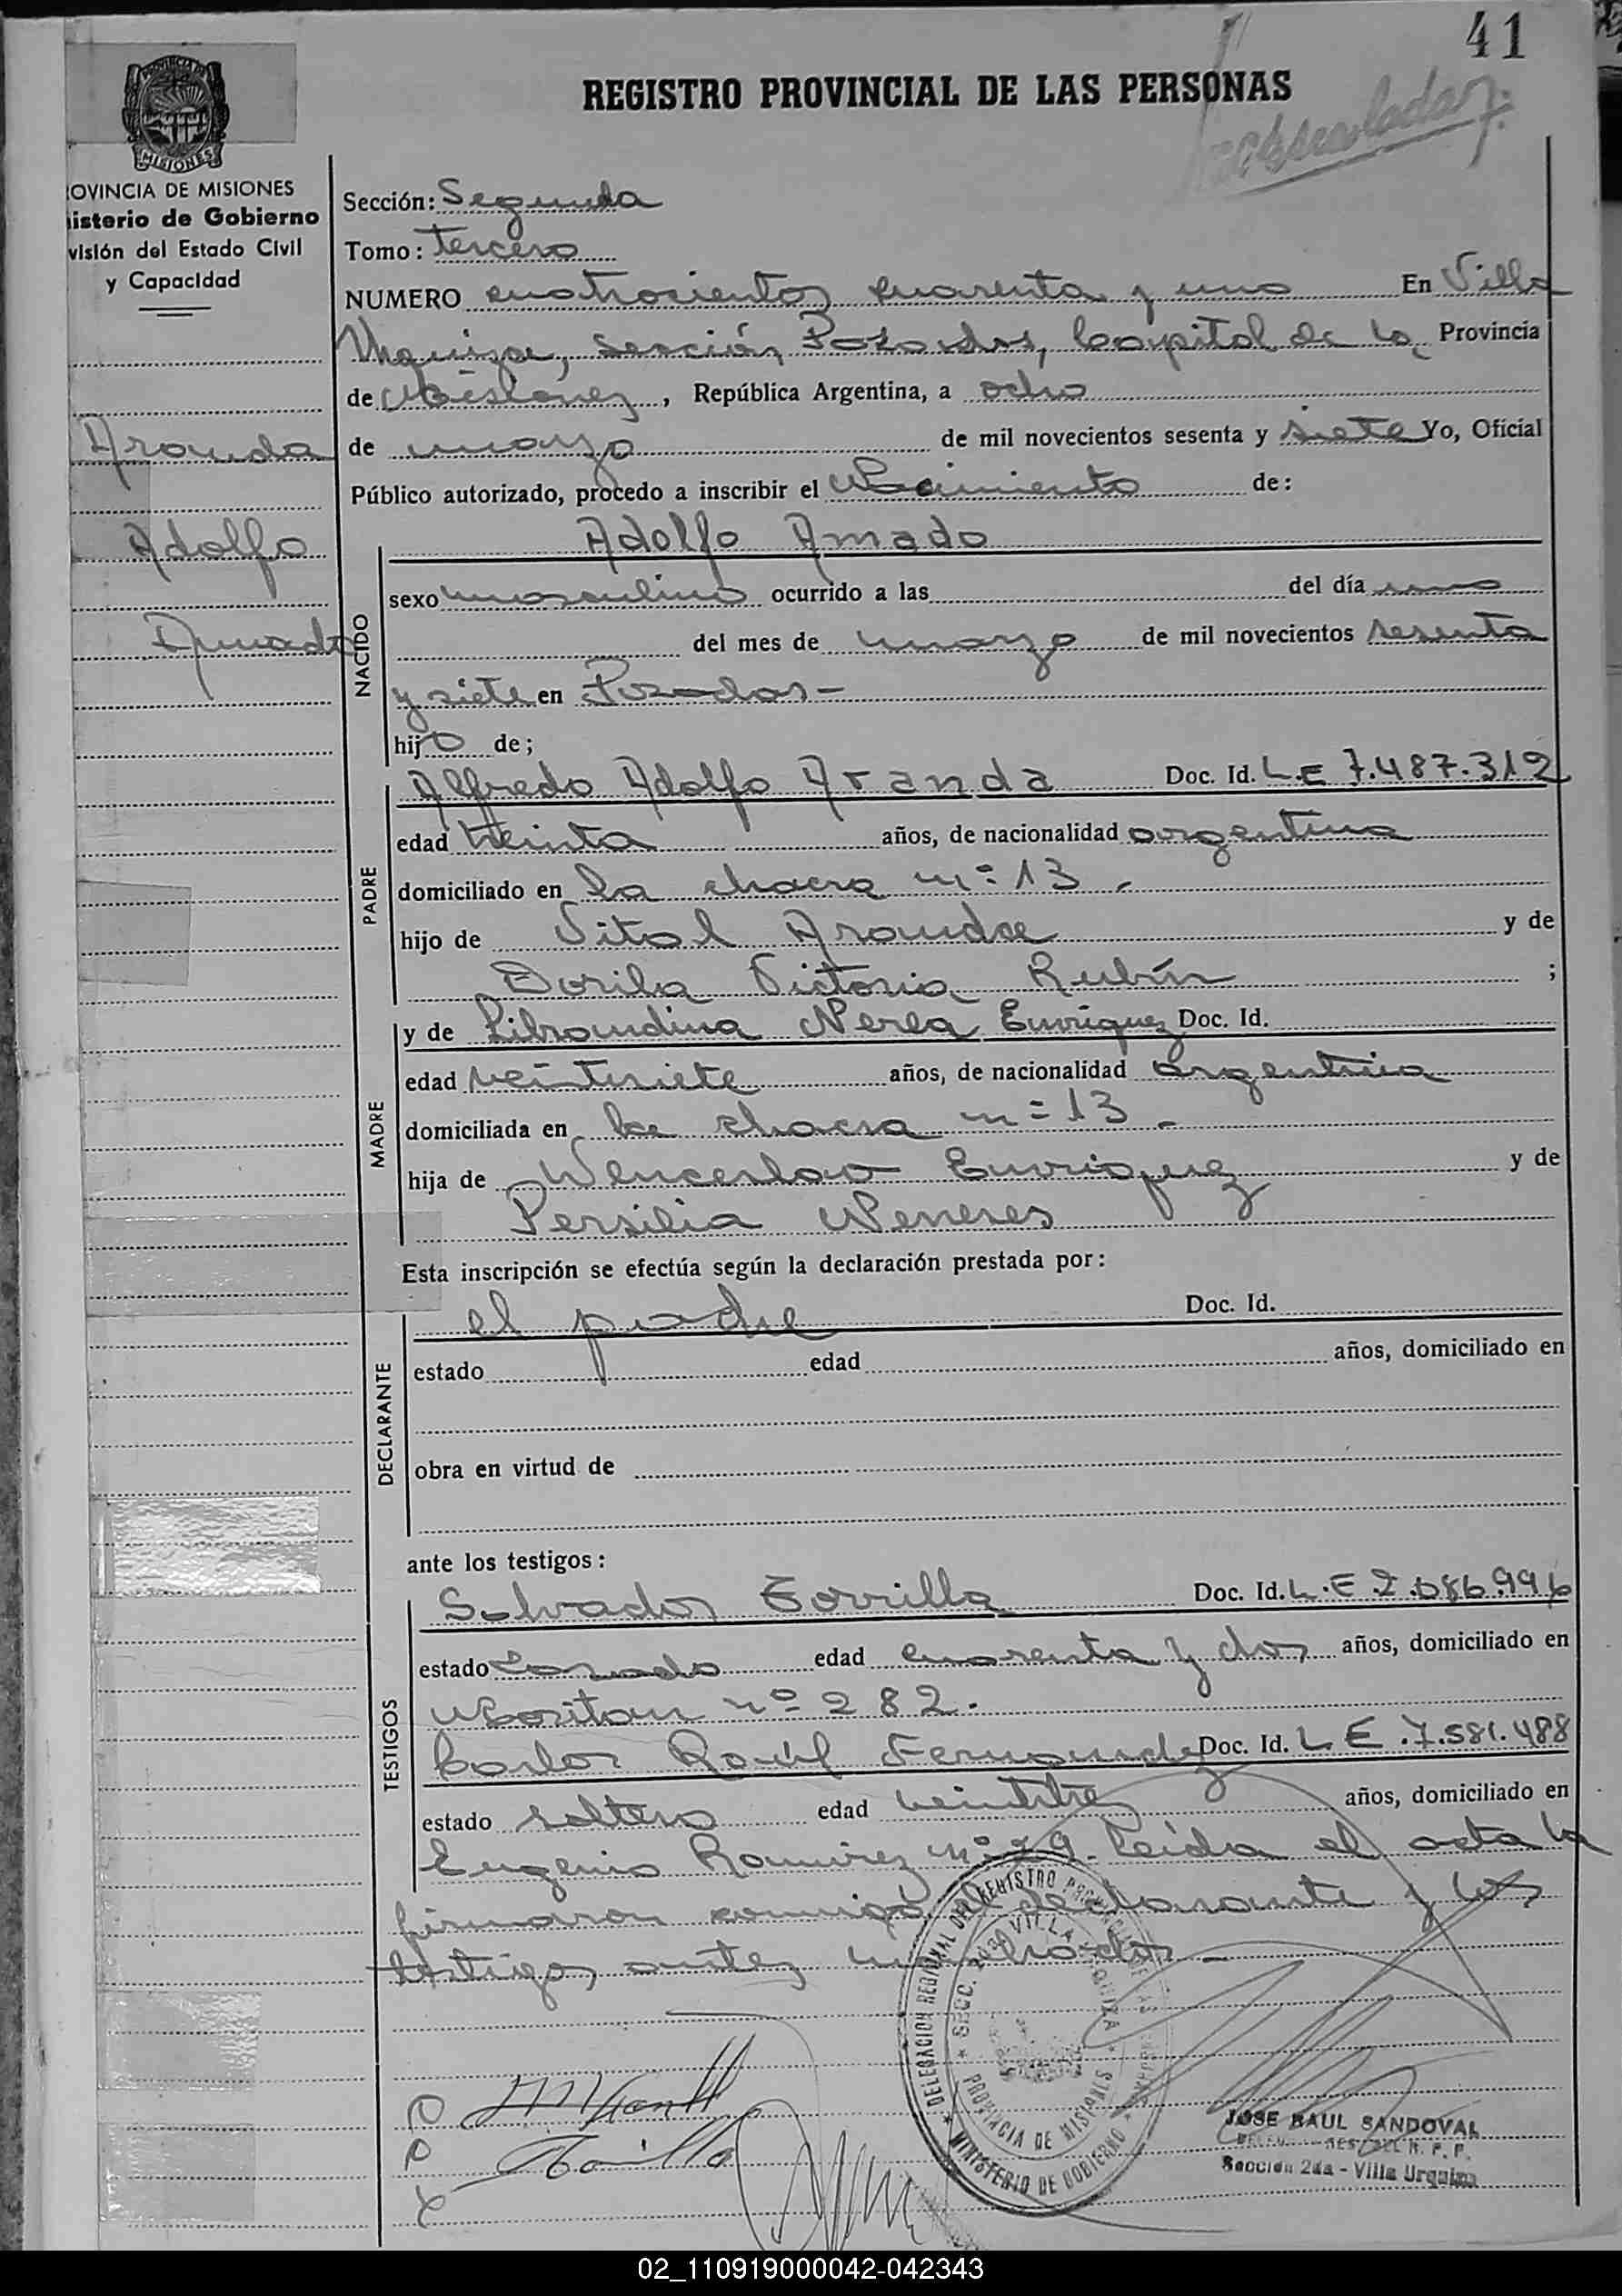 41
REGISTRO PROVINCIAL DE LAS PERSONAS
MISIONES
OVINCIA DE MISIONES
isterio de Gobierno
visión del Estado Civil
y Capacidad
Aranda
Adolfo
Amado
Sección: Segunda
Tomo: Tercero
NUMERO cuatrocientos cuarenta y uno En Villa
Urquiza, Sección Posadas, Capital de la Provincia
de Misiones, República Argentina, a ocho
de marzo de mil novecientos sesenta y siete Yo, Oficial
Público autorizado, procedo a inscribir el Nacimiento de:
Adolfo Amado
NACIDO
sexo masculino ocurrido a las del día uno
del mes de marzo de mil novecientos sesenta
y siete en Posadas -
hijo de;
PADRE
Alfredo Adolfo Aranda Doc. Id. L.E 7.487.312
edad treinta años, de nacionalidad argentina
domiciliado en la chacra nº 13 -
hijo de Vital Aranda y de
Dorila Victoria Rubín ;
MADRE
y de Librandina Nerea Enriquez Doc. Id.
edad veintisiete años, de nacionalidad argentina
domiciliada en la chacra nº 13 -
hija de Wenceslao Enriquez y de
Persilia Meneses
Esta inscripción se efectúa según la declaración prestada por:
DECLARANTE
el padre Doc. Id.
estado edad años, domiciliado en
obra en virtud de
ante los testigos:
TESTIGOS
Salvador Zorrilla Doc. Id. L.E 2.086.996
estado Casado edad cuarenta y dos años, domiciliado en
nº 282.
Carlos Raúl Fernandez Doc. Id. L E .7.581.488
estado soltero edad veintitres años, domiciliado en
Eugenio Ramirez nº 79. Leída el acta la
firmaron conmigo el declarante y los
testigos antes
DELEGACION REGIONAL DEL REGISTRO PROVINCIAL DE LAS PERSONAS
MINISTERIO DE GOBIERNO
SECC. 2da VILLA URQUIZA
PROVINCIA DE MISIONES
JOSE RAUL SANDOVAL
R. P. P.
Sección 2da - Villa Urquiza
02_110919000042-042343